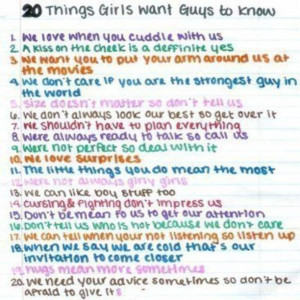 20 Things Girls Want Guys to know
1. We love when you cuddle with us
2. A kiss on the cheek is a deffinite yes
3. We want you to put your arm around us at
the movies
4. We don't care if you are the strongest guy in
the world
5. Size doesn't matter so don't tell us
6. We don't always look our best so get over it
7. We shouldn't have to plan everything
8. Were always ready to talk so call us
9. Were not perfect so deal with it
10. We love surprises
11. The little things you do mean the most
12. Were not always girly girls
13. We can like boy stuff too
14. Cursing & fighting don't impress us
15. Don't be mean to us to get our attention
16. Don't tell us who is hot because we don't care
17. We can tell when your not listening so listen up
18. When we say we are cold that's our
invitation to come closer
19. hugs mean more sometimes
20. We need your advice sometimes so don't be
afraid to give it